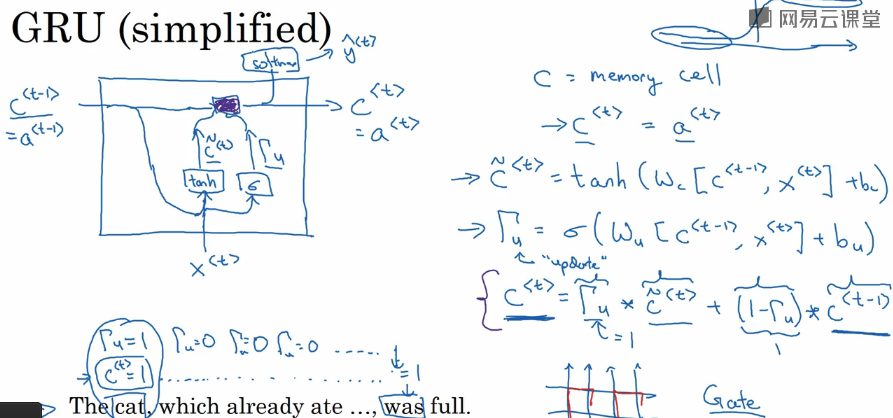 GRU (simplified)
网易云课堂
softmax → ŷ^<t>
c^<t-1>
= a^<t-1>
c^<t>
= a^<t>
c̃^<t> Γu
tanh σ
x^<t>
C = memory cell
→ c^<t> = a^<t>
→ c̃^<t> = tanh (Wc [c^<t-1>, x^<t>] + bc)
→ Γu = σ (Wu [c^<t-1>, x^<t>] + bu)
"update"
c^<t> = Γu * c̃^<t> + (1-Γu) * c^<t-1>
= 1 1
Γu=1 Γu=0 Γu=0 Γu=0 .....
→ c^<t>=1 .......... = 1
The cat, which already ate …, was full.
Gate